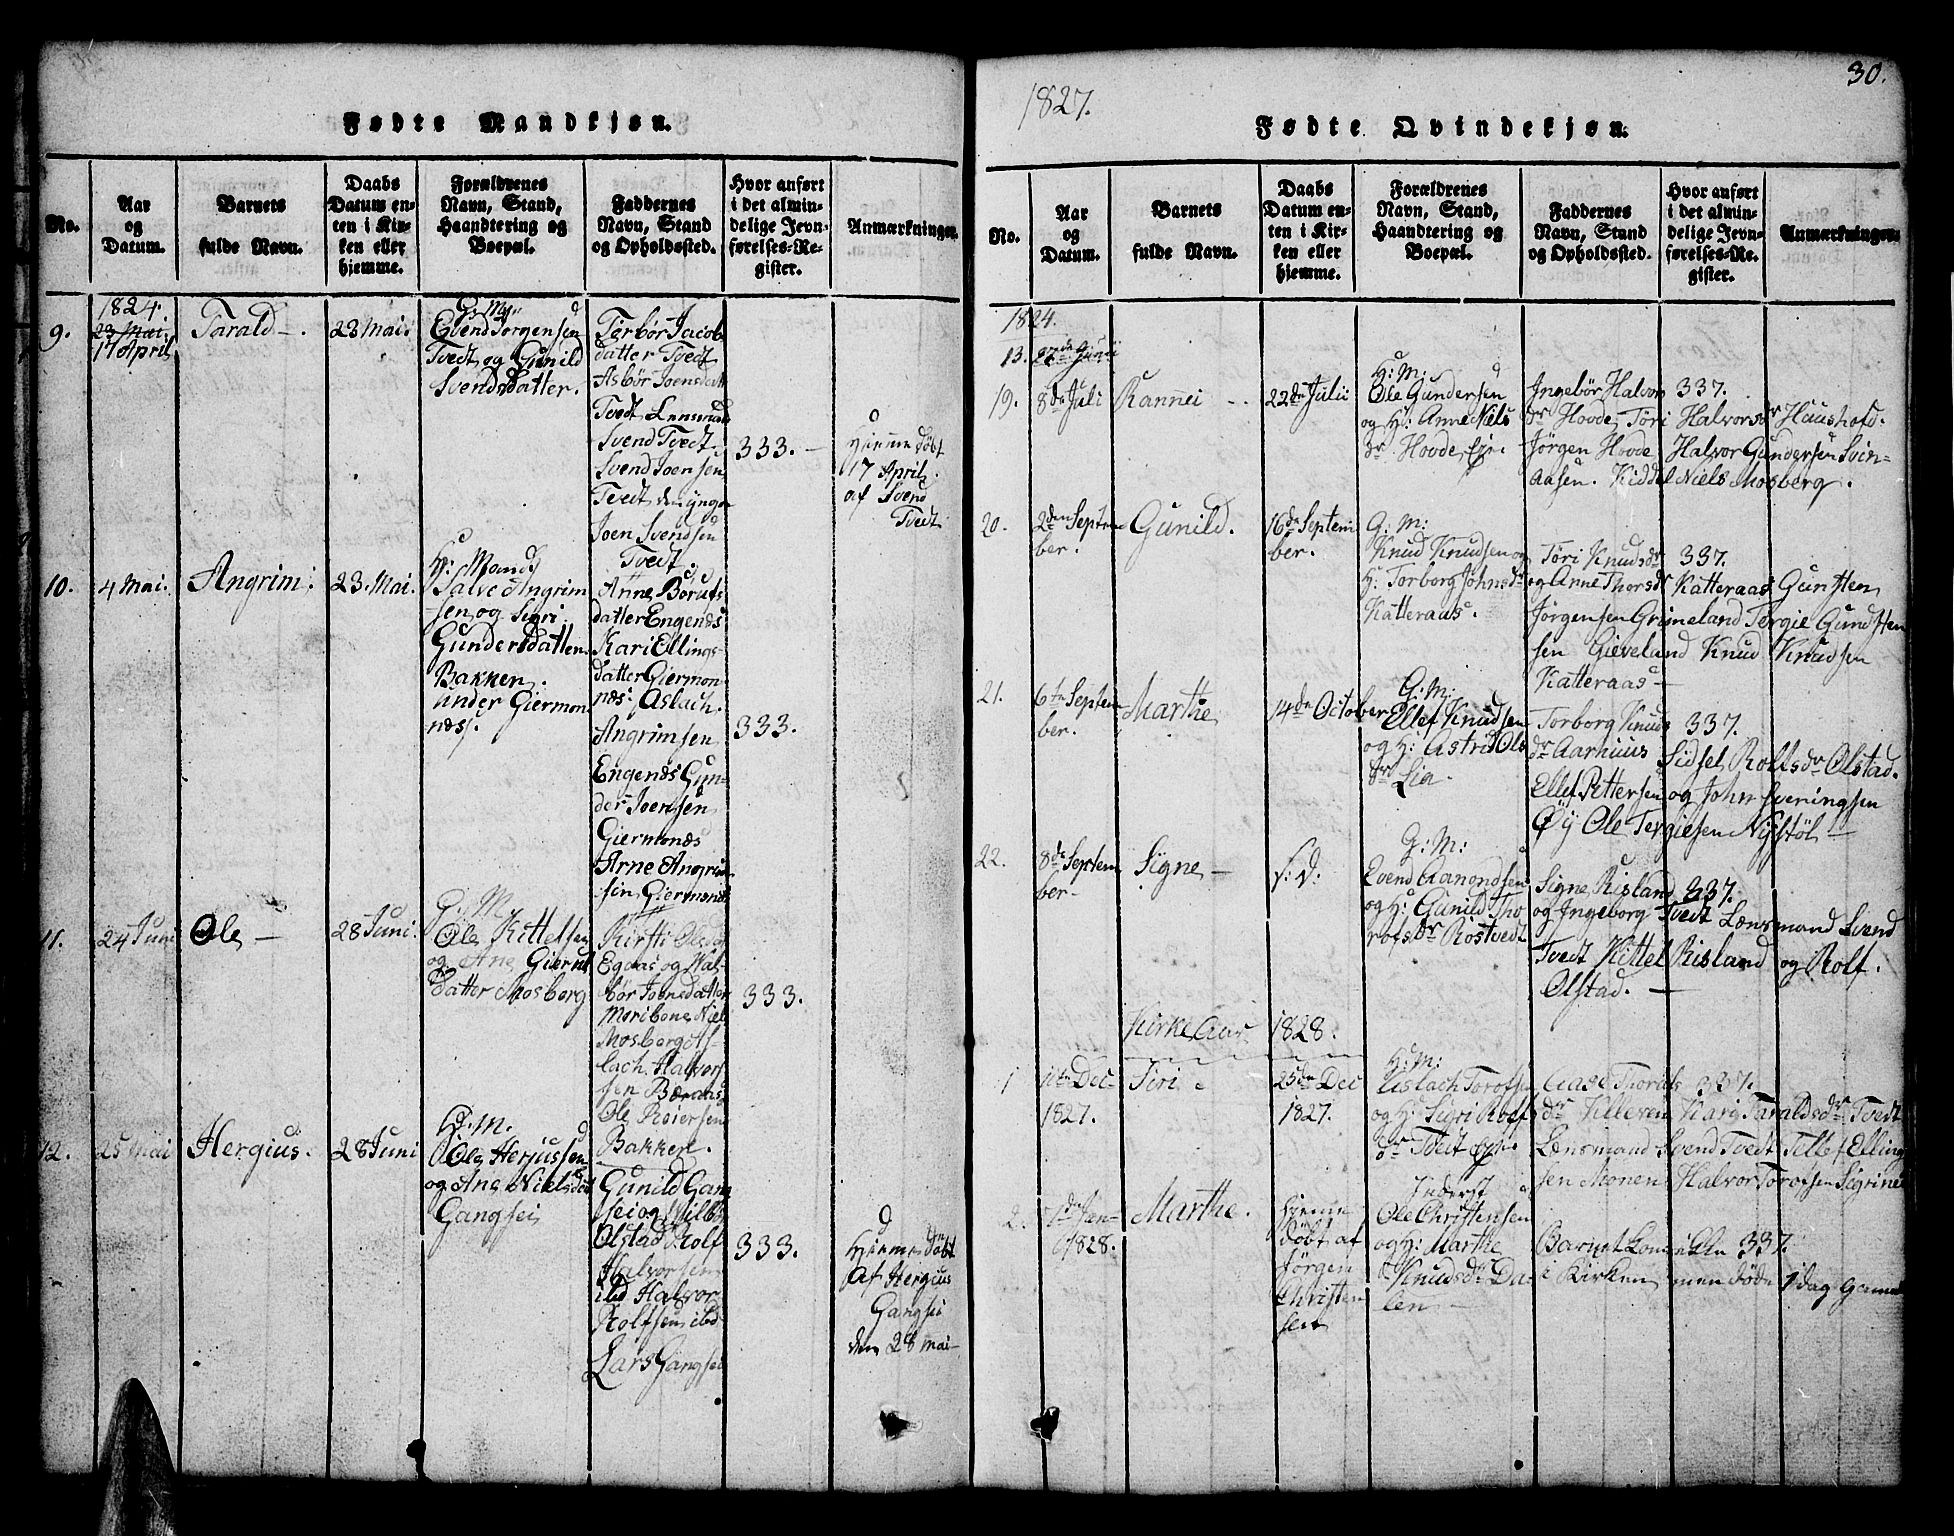 Fødte Mandkjøn.
No.
Aar
og
Datum.
Barnets
fulde Navn.
Daabs
Datum en-
ten i Kir-
ken eller
hjemme.
Forældrenes
Navn, Stand,
Haandtering og
Boepæl.
Faddernes
Navn, Stand
og Opholdssted.
Hvor anført
i det almin-
delige Jevn-
førelses-Re-
gister.
Anmærkninger.
9.
1824.
23 Mai.
17 April
Tarald
23 Mai.
G. M.
Evend Jørgensen
Tvedt og Gunild
Svendsdatter.
Torbør Jacobs
datter Tvedt
Asbør Joensdatt
Tvedt Lensmand
Svend Tvedt.
Svend Joensen
Tvedt den yngre
Joen Svendsen
Tvedt.
333.
Hjemme døbt
17 April
af Svend
Tvedt
10.
4 Mai.
Angrim.
23. Mai.
H: Mand
Salve Angrim
sen og Sigri
Gundersdatter
Bakken.
under Giermon
næs.
Anne Børufs
datter Engenæs
Kari Ellings
datter Giermon
næs. Aslach
Angrimsen
Engenæs Gun-
der Joensen
Giermonæs
Arne Angrim
sen Giermonæs
333.
11.
24 Juni
Ole
28 Juni.
G. M.
Ole Kittelsen
og Ane Giernls
datter Mosberg
Kirsti Olsdr
Egaas og Wal-
bør Joensdatter
Moribone Niels
Mosberg As-
lach Halvor
sen Bæraas
Ole Reiersen
Bakken.
333.
12.
25 Mai
Hergius.
28 Juni
G. M.
Ole Herjussen
og Ane Nielsdat
Gangsei
Gunild Gang
sei og Wilb
Olstad Rolf
Halvorsen
ibd Halvor
Rolfsen ibd
Lars Gangsei
333.
Hjemme døbt
af Hergius
Gangsei
den 28 Mai
30.
1827.
Fødte Qvindekjøn.
No.
Aar
og
Datum.
Barnets
fulde Navn.
Daabs
Datum en-
ten i Kir-
ken eller
hjemme.
Forældrenes
Navn, Stand,
Haandtering og
Boepæl.
Faddernes
Navn, Stand
og Opholdssted.
Hvor anført
i det almin-
delige Jevn-
førelses-Re-
gister.
Anmærkninger.
1824.
13. 27de Junii
19. 8de Juli
Rannei
22de Julii
H: M:
Ole Gundersen
og H: Anne Niels
dr Hovde
Ingebør Halvors 337.
dr Hovde, Tøri Halvorsdr Haushofd.
Jørgen Hovde, Halvor Gundersen Svin-
aasen. Kiddel Niels Mosberg.
20. 2den Septem
ber.
Gunild.
16de Septem
ber.
G: M:
Knud Knudsen og
H: Torborg Johnsdr
Katteraas.
Tøri Knudsdr 337.
og Anne Thorsdr Katteraas Gunsten
Jørgensen Grimeland Tergie Gundsten
sen Gieveland Knud Knudsen
Katteraas
21. 6te Septem
ber.
Marthe
14de October
G: M:
Ellef Knudsen
og H: Astrid Ols
dr Lia.
Torborg Knuds 337.
dr Aarhuus Sidsel Rolfsdr Ølstad.
Ellef Pettersen og John Sveningsen
Øy Ole Tergiesen Nystøl
22. 8de Septem
ber.
Signe
s: D.
G: M:
Evend Aanondsen
og H: Gunild Tho
rofsdr Rostvedt
Signe Risland 337.
og Ingeborg Tvedt Lænsmand Svend
Tvedt Kittel Risland og Rolf
Olstad.
Kirke Aar 1828.
1 11te Dec
1827.
Siri
25de Dec
1827.
H: M:
Aslach Torofsen
og H: Sigri Rolfs
dr Tvedt
Aase Thorofs 337.
dr Killeven Kari Taraldsdr Tvedt
Lænsmand Svend Tvedt Tellef Elling
sen Monen Halvor Torofsen Sigrines
2. 7de Jan-
1828.
Marthe.
Hjemme
døbt af
Jørgen
Christen
sen
Inderst
Ole Christensen
og H: Marthe
Knudsdr Da-
len
Barnet kom ikke 337.
i Kirken men døde 1 dag gammel